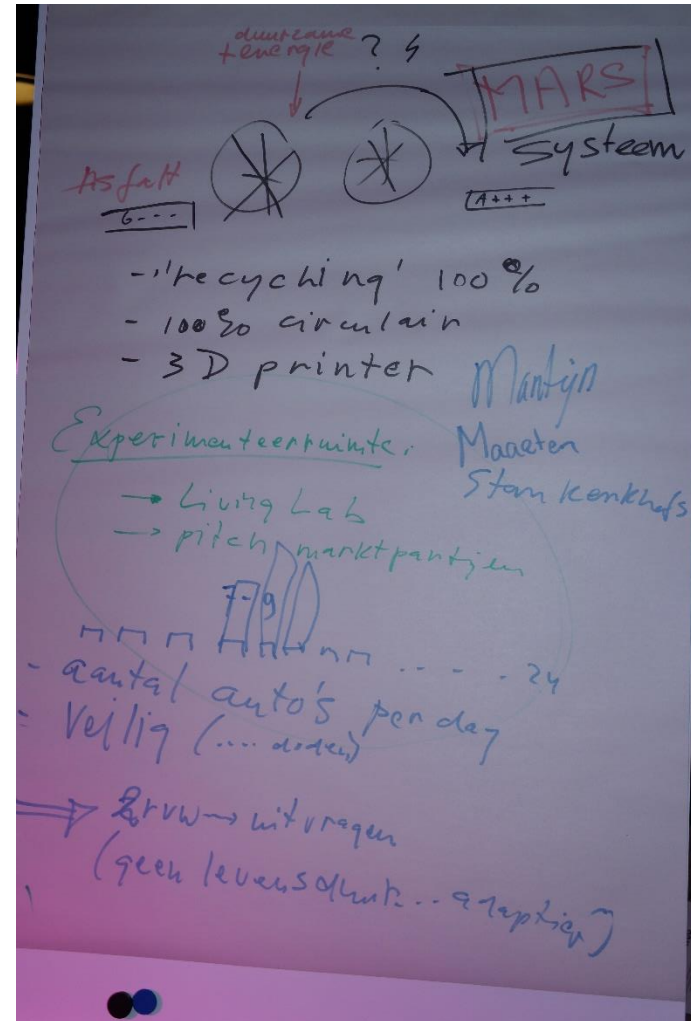 duurzame
+ energie ?
MARS
systeem
Asfalt
G - - -
A+++
- 'recycling' 100 %
- 100% circulair
- 3D printer
Martijn
Maarten
Stan Kerkhofs
Experimenteerruimte.
→ Living Lab
→ pitch marktpartijen
7-9
.... 24
- aantal auto's per day
- Veilig (.... doden)
⇒ RVW → uitvragen
(geen levensduur... adaptief)